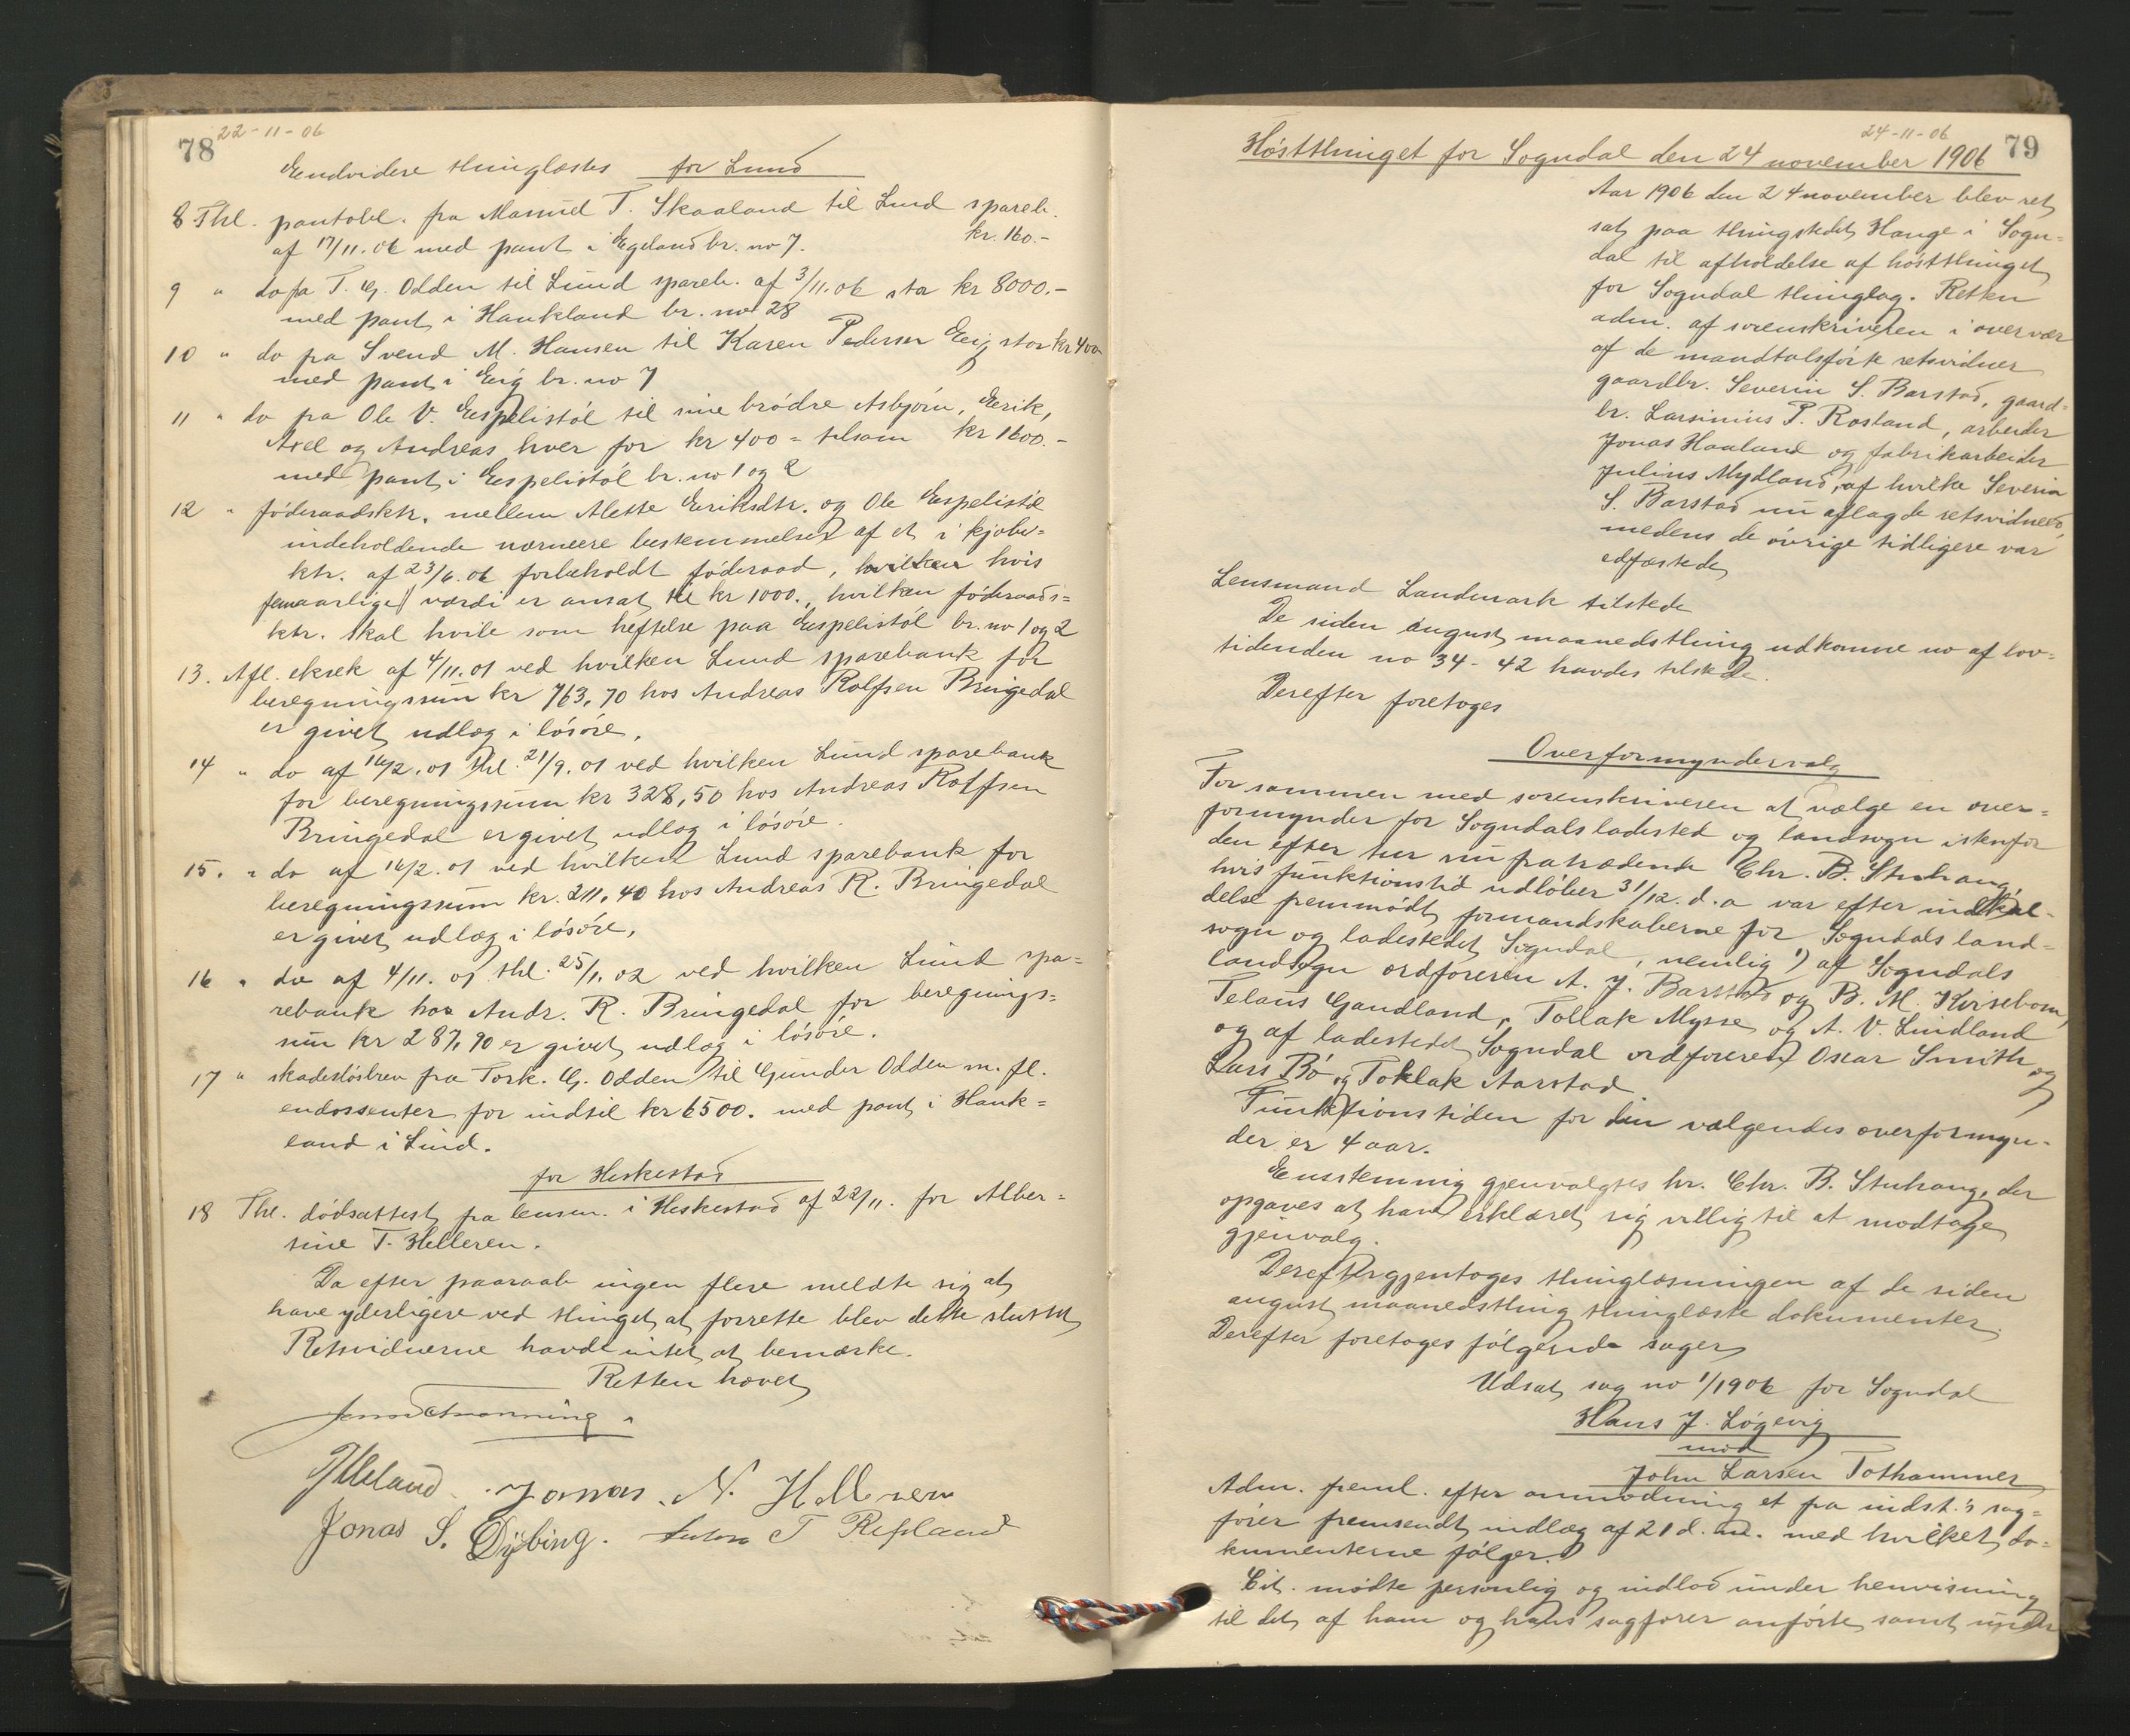 78
22-11-06
Endvidere thinglæstes for Lund
8 Thl. pantobl. fra Manuel T. Skaaland til Lund spareb.
af 17/11.06 med pant i Egeland br. no 7. kr. 160.-
9 " do fra T. G. Odden til Lund spareb. af 3/11.06 stor kr 8000.-
med pant i Haukland br. no 28
10 " do fra Svend M. Hansen til Karen Pedersen Eeig stor kr 400
med pant i Eeig br. no 7
11 " do fra Ole V. Eespelistøl til sine brødre Asbjørn, Eerik,
Axel og Andreas hver for kr 400 = tilsam kr 1600.-
med pant i Eespelistøl br. no 1 og 2
12 " føderaadsktr. mellem Alette Eeriksdtr. og Ole Eespelistøl
indeholdende nærmere bestemmelser af et i kjøbe-
ktr. af 23/6.06 forbeholdt føderaad, hvilken hvis
femaarlige værdi er ansat til kr 1000., hvilken føderaads=
ktr. skal hvile som heftelse paa Eespelistøl br. no 1 og 2
13. Afl. eksek af 4/11.01 ved hvilken Lund sparebank for
beregningssum kr 763,70 hos Andreas Rolfsen Bringedal
er givet udlæg i løsøre.
14 " do af 16/2.01 thl. 21/9.01 ved hvilken Lund sparebank
for beregningssum kr 328,50 hos Andreas Rolfsen
Bringedal er givet udlæg i løsøre.
15. " do af 16/2.01 ved hvilken Lund sparebank for
beregningssum kr. 211,40 hos Andreas R. Bringedal
er givet udlæg i løsøre,
16 " do af 4/11.01 thl. 25/1.02 ved hvilken Lund spa=
rebank hos Andr. R. Bringedal for beregnings=
sum kr 287,90 er givet udlæg i løsøre.
17 " skadesløsbrev fra Tork. G. Odden til Gunder Odden m. fl.
endossenter for indtil kr 6500. med pant i Hauk=
land i Lund.
for Heskestad
18 Thl. dødsattest fra lensm. i Heskestad af 22/11. for Alber=
tine T. Helleren.
Da efter paaraab ingen flere meldte sig at
have yderligere ved thinget at forrette blev dette sluttet
Retsvidnerne havde intet at bemærke.
Retten hævet
Jonas N. Helleren
Jonas S. Dybing. T Refsland
24-11-06
79
Høstthinget for Sogndal den 24 november 1906
Aar 1906 den 24 november blev ret
sat paa thingstedet Hauge i Sogn=
dal til afholdelse af høstthinget
for Sogndal thinglag. Retten
adm. af sorenskriveren i overvær
af de mandtalsførte retsvidner
gaardbr. Severin S. Barstad, gaard=
br. Larsinius P. Rosland, arbeider
Jonas Haaland og fabrikarbeider
Julius Mydland, af hvilke Severin
S. Barstad nu aflagde retsvidneed,
medens de øvrige tidligere var
edfæstede
Lensmand Landmark tilstede
De siden august maanedsthing udkomne no af lov=
tidenden no 34-42 havdes tilstede.
Derefter foretoges
Overformyndervalg
For sammen med sorenskriveren at vælge en over=
formynder for Sogndals ladested og landsogn istenfor
den efter tur nu fratrædende Chr. B. Stuhaug,
hvis funktionstid udløber 31/12. d. a var efter indkal-
delse fremmødt formandskaberne for Sogndals land=
sogn og ladestedet Sogndal, nemlig 1) af Sogndals
landsogn ordføreren A. J. Barstad og B. M. Kirsebom,
Telaus Gandland, Tollak Mysse og A. V. Lindland
og af ladestedet Sogndal ordføreren Oscar Smith og
Lars Bø og Tollak Aarstad
Funktionstiden for den valgendes overformyn-
der er 4 aar.
Eensstemmig gjenvalgtes hr. Chr. B. Stuhaug, der
opgaves at have erklæret sig villig til at modtage
gjenvalg.
Derefter gjentoges thinglæsningen af de siden
august maanedsthing thinglæste dokumenter.
Derefter foretoges følgende sager
Udsat sag no 1/1906 for Sogndal
Hans J. Løgevig
mod
John Larsen Tothammer
Adm. freml. efter anmodning et fra indst.'s sag=
fører fremsendt indlæg af 21 d. m. med hvilket do=
kumenterne følger.
Cit. mødte personlig og indlod under henvisning
til det af ham og hans sagfører anførte samt under